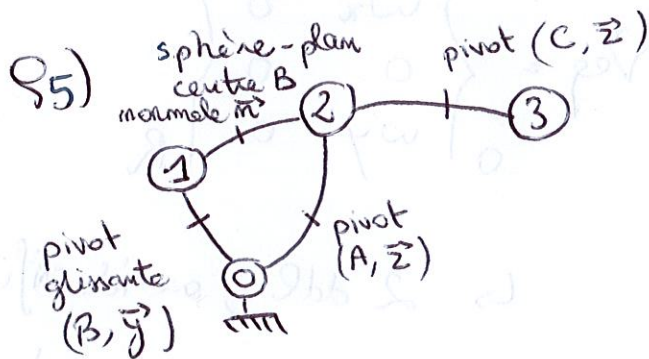 Q5)
sphère-plan
centre B
normale n⃗
pivot (C, z⃗)
1
2
3
pivot
glissante
(B, y⃗)
pivot
(A, z⃗)
0